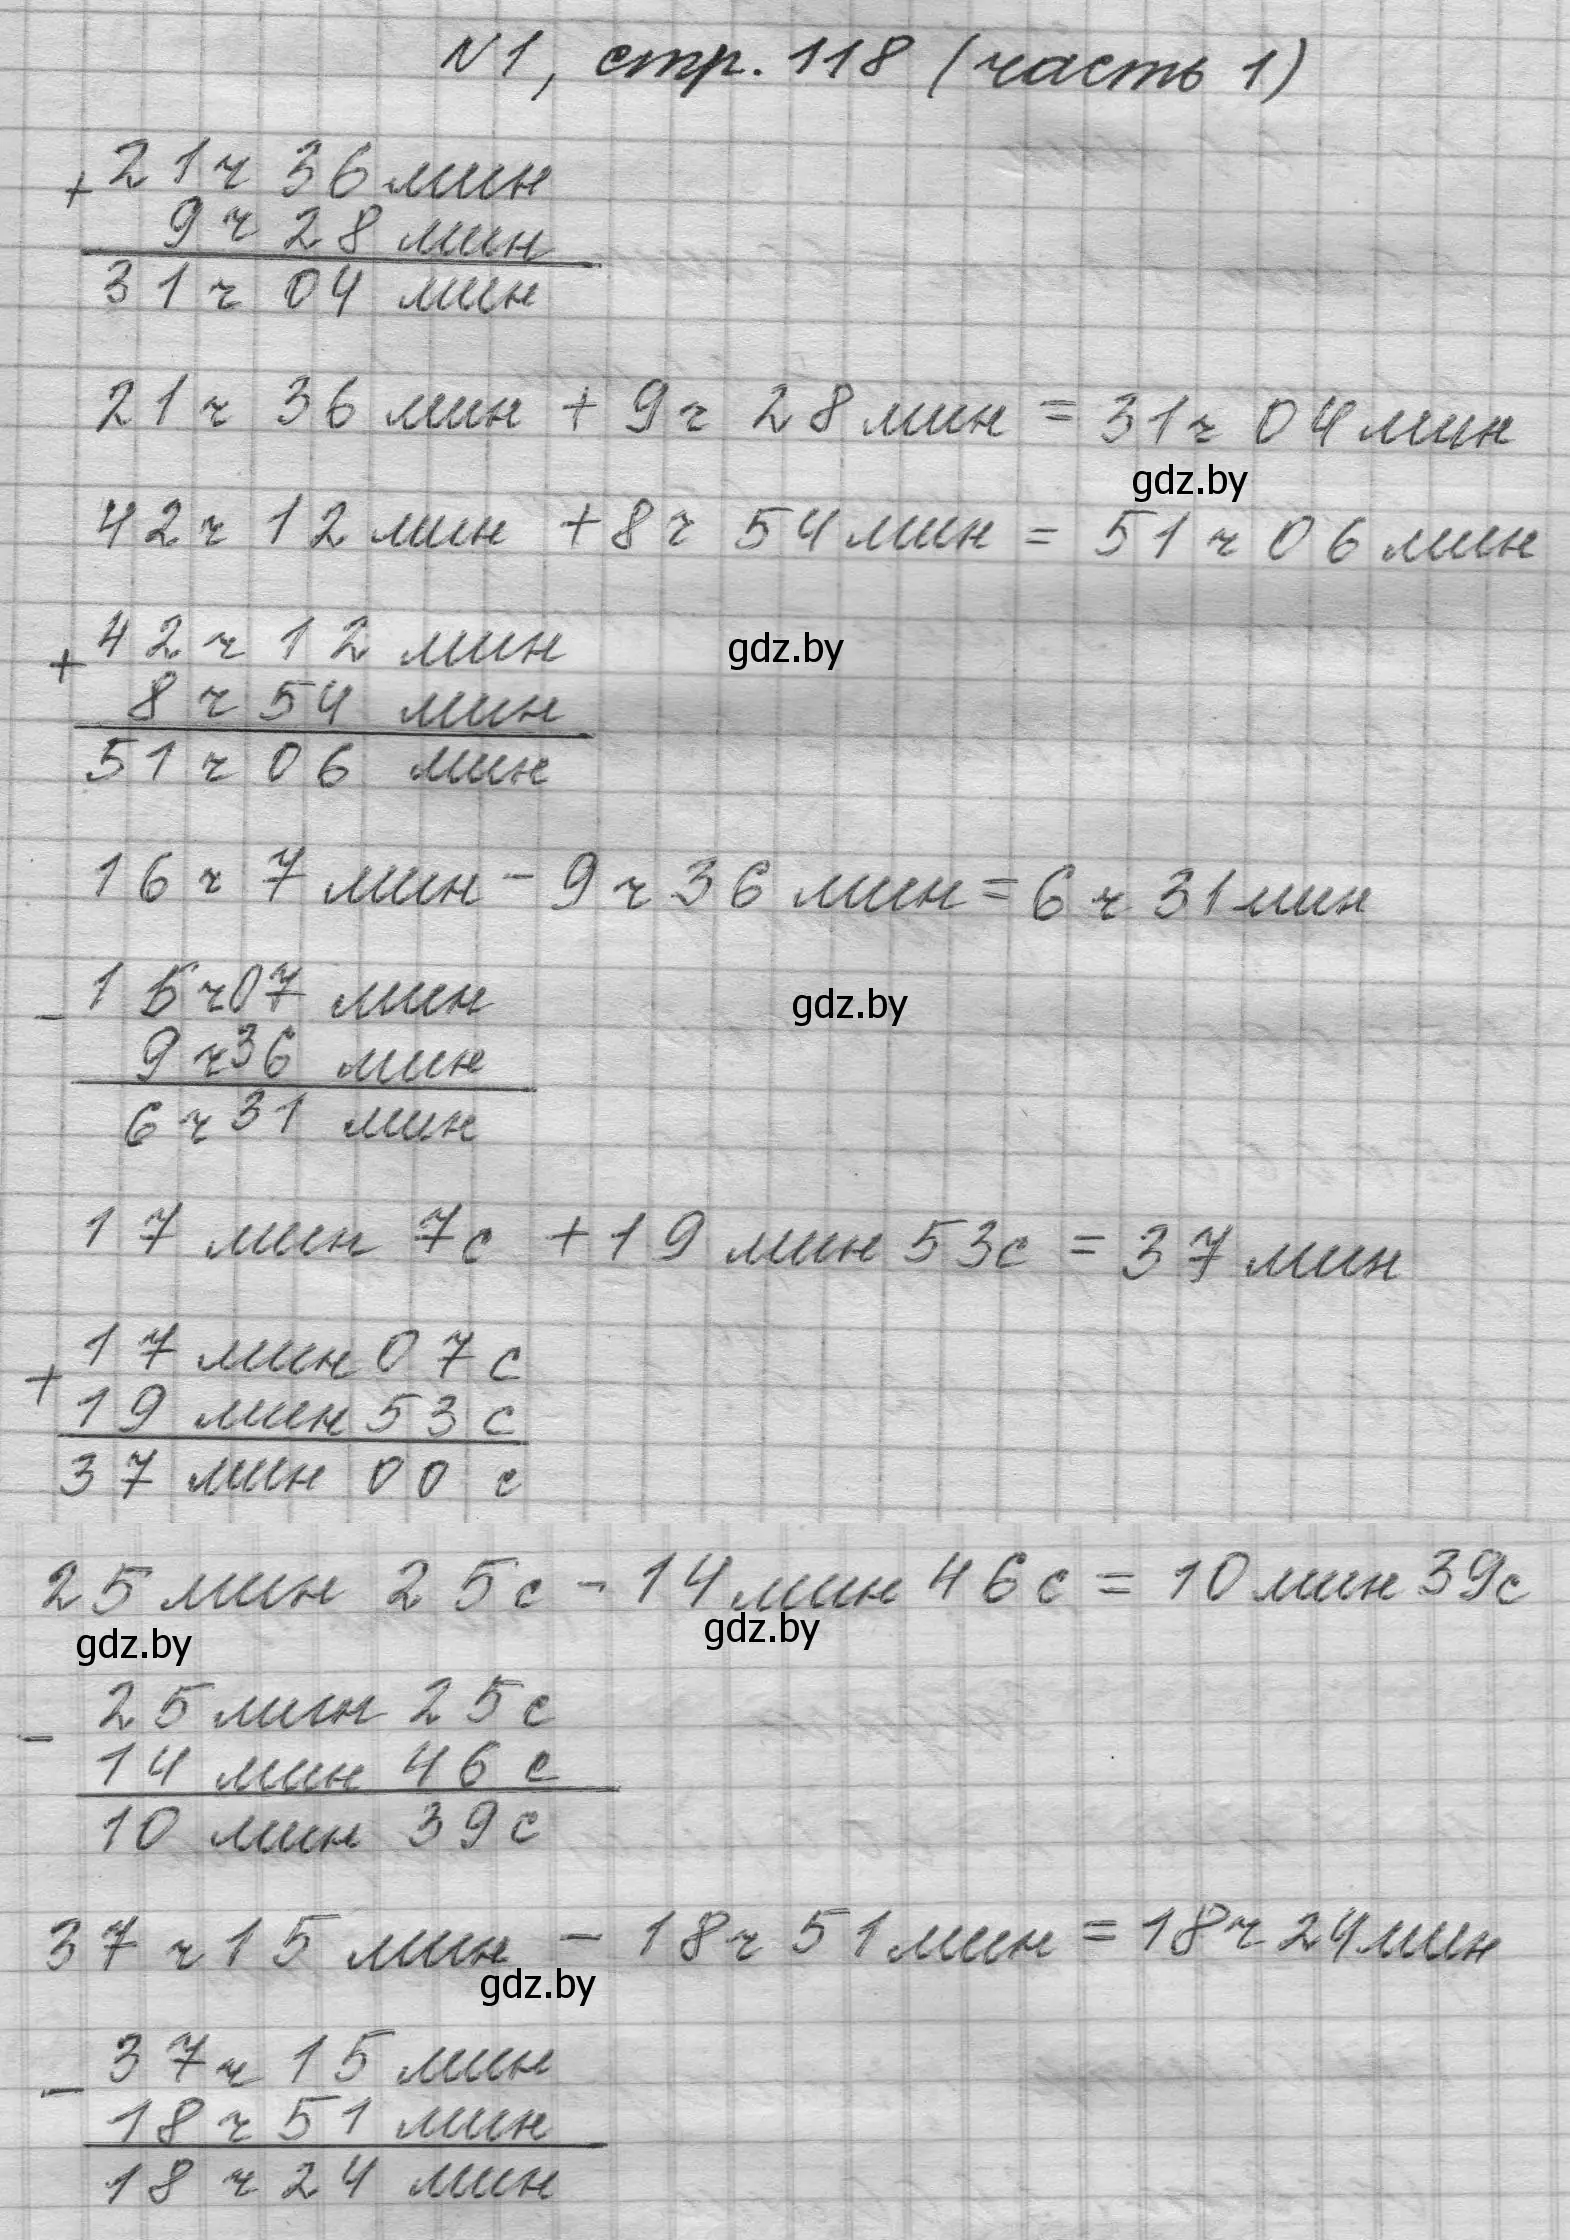 N1, стр. 118 (часть 1)
+ 21 ч 36 мин
9 ч 28 мин
31 ч 04 мин
21 ч 36 мин + 9 ч 28 мин = 31 ч 04 мин
gdz.by
42 ч 12 мин + 8 ч 54 мин = 51 ч 06 мин
+ 42 ч 12 мин
gdz.by
8 ч 54 мин
51 ч 06 мин
16 ч 7 мин - 9 ч 36 мин = 6 ч 31 мин
- 16 ч 07 мин
gdz.by
9 ч 36 мин
6 ч 31 мин
17 мин 7 с + 19 мин 53 с = 37 мин
+ 17 мин 07 с
19 мин 53 с
37 мин 00 с
25 мин 25 с - 14 мин 46 с = 10 мин 39 с
gdz.by gdz.by
- 25 мин 25 с
14 мин 46 с
10 мин 39 с
37 ч 15 мин - 18 ч 51 мин = 18 ч 24 мин
gdz.by
- 37 ч 15 мин
18 ч 51 мин
18 ч 24 мин